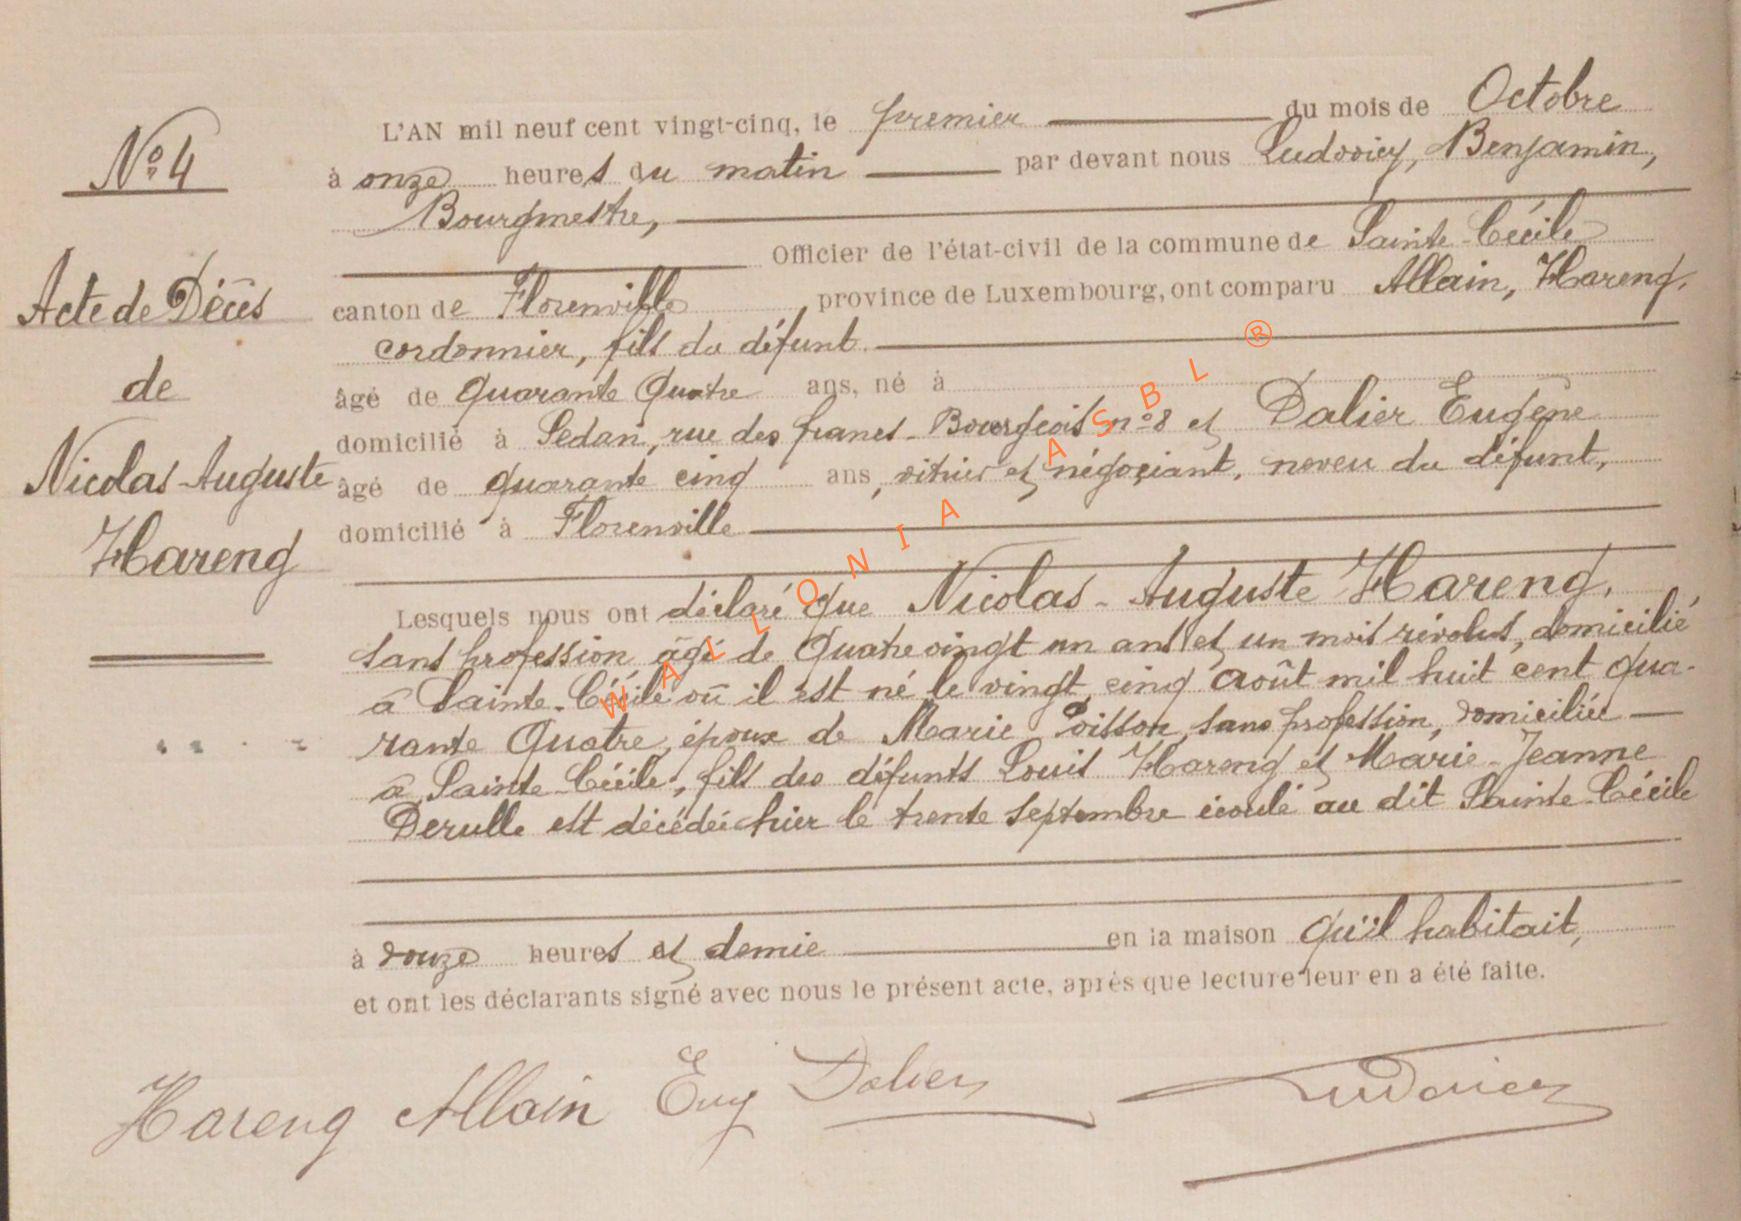 N° 4
Acte de Décès
de
Nicolas-Auguste
Hareng
L'AN mil neuf cent vingt-cinq, le premier du mois de Octobre
à onze heures du matin par devant nous Ludovicy, Benjamin,
Bourgmestre,
Officier de l'état-civil de la commune de Sainte-Cécile
canton de Florenville, province de Luxembourg, ont comparu Allain, Hareng,
cordonnier, fils du défunt.
âgé de quarante quatre ans, né à
domicilié à Sedan, rue des francs-Bourgeois n°8 et Dalier Eugène
âgé de quarante cinq ans, vitrier et négociant, neveu du défunt,
domicilié à Florenville
Lesquels nous ont déclaré que Nicolas-Auguste Hareng,
sans profession, âgé de quatre vingt un ans et un mois révolus, domicilié
à Sainte-Cécile où il est né le vingt cinq août mil huit cent qua-
rante quatre, époux de Marie Poisson, sans profession, domiciliée
à Sainte-Cécile, fils des défunts Louis Hareng et Marie-Jeanne
Derulle est décédé hier le trente septembre écoulé au dit Sainte-Cécile
à douze heures et demie en la maison qu'il habitait,
et ont les déclarants signé avec nous le présent acte, après que lecture leur en a été faite.
Hareng Allain Eug Dalier Ludovicy
WALLONIA ASBL ®